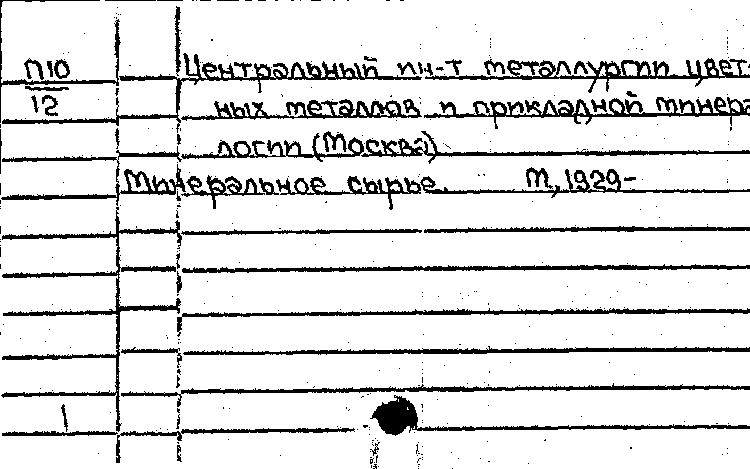 П10
12
Центральный ин-т металлургии цвет-
ных металлов и прикладной минера
логии (Москва)
Минеральное сырье. М, 1929-
1